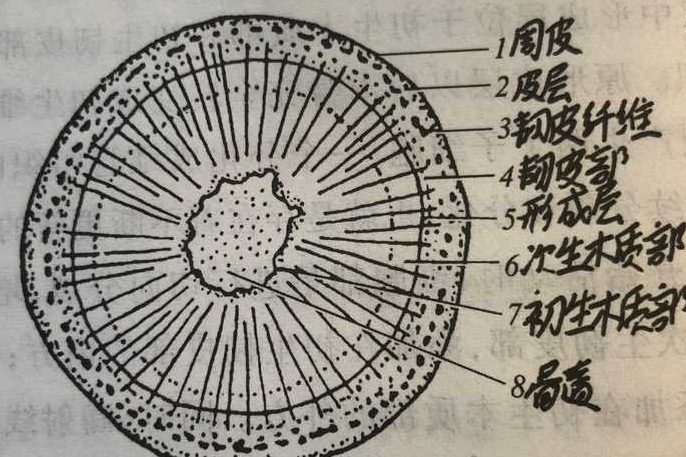 1 周皮
2 皮层
3 韧皮纤维
4 韧皮部
5 形成层
6 次生木质部
7 初生木质部
8 骨髓